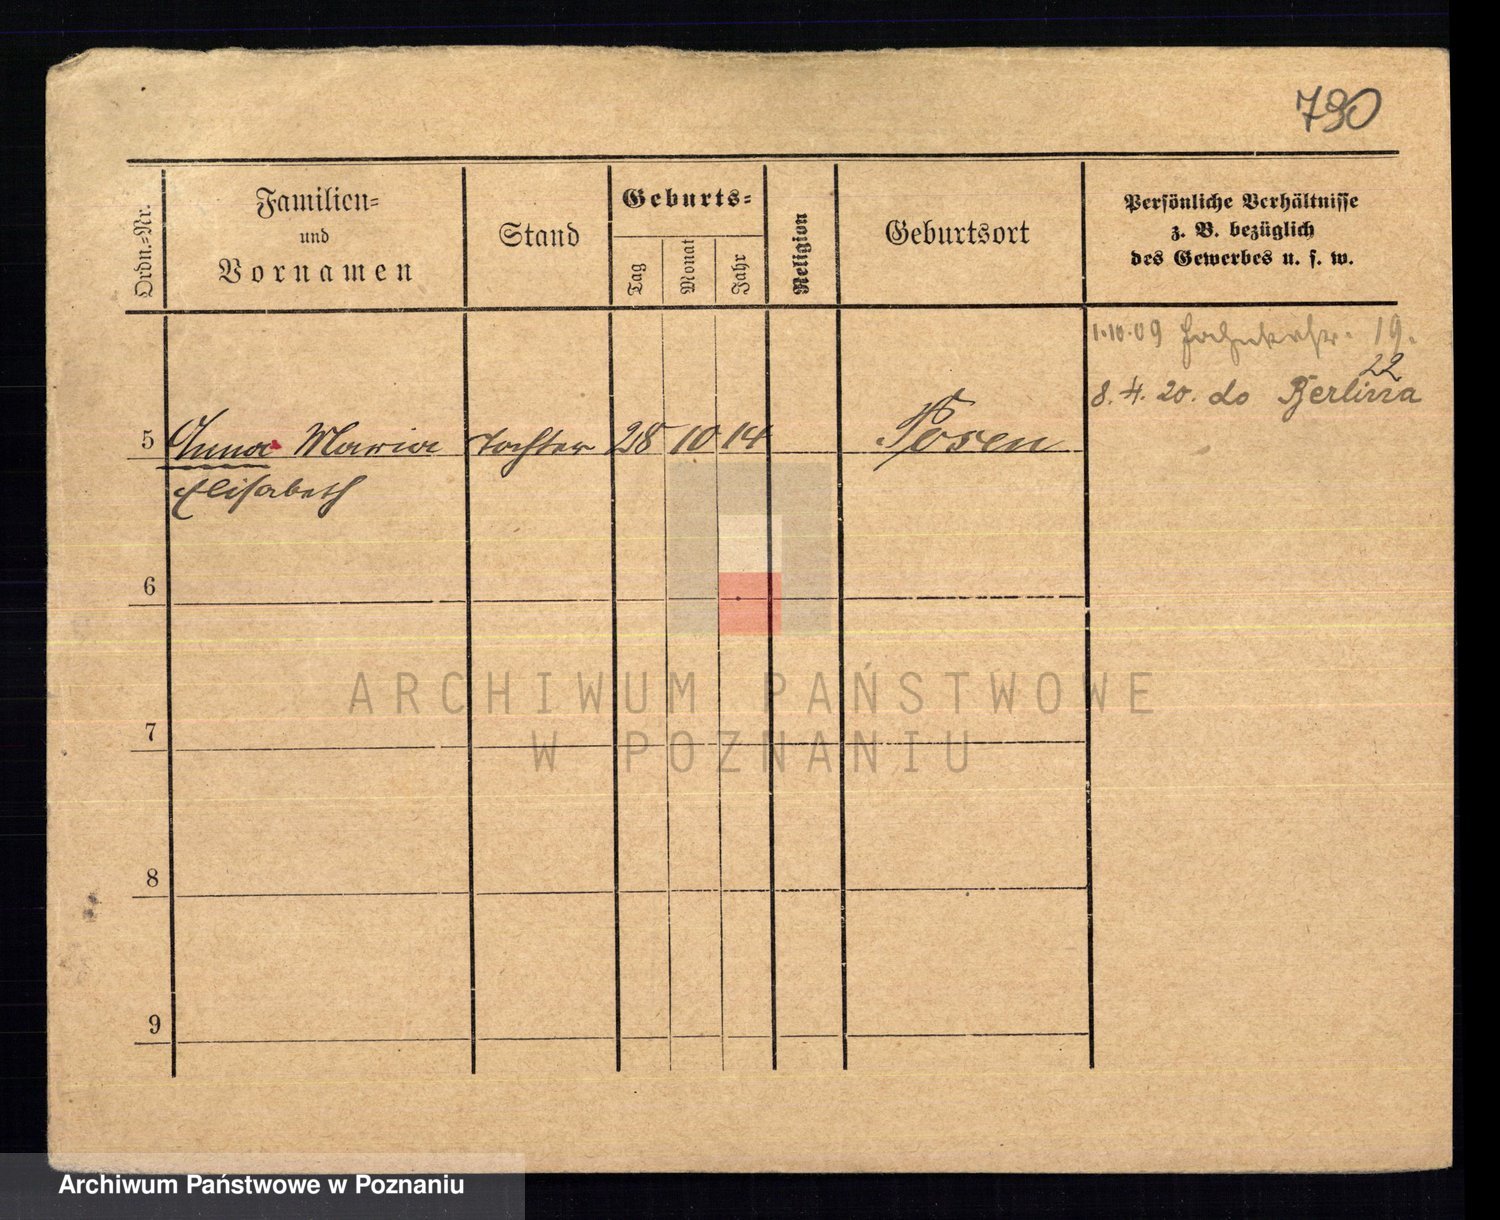 790
Ordn.-Nr.
Familien-
und
Vornamen
Stand
Geburts-
Tag
Monat
Jahr
Religion
Geburtsort
Persönliche Verhältnisse
z. B. bezüglich
des Gewerbes u. s. w.
1.10.09 19.
22
8.4.20. do Berlina
5 Anna Maria Tochter 28 10 14 Posen
Elisabeth
6
7
8
9
ARCHIWUM PAŃSTWOWE
W POZNANIU
Archiwum Państwowe w Poznaniu